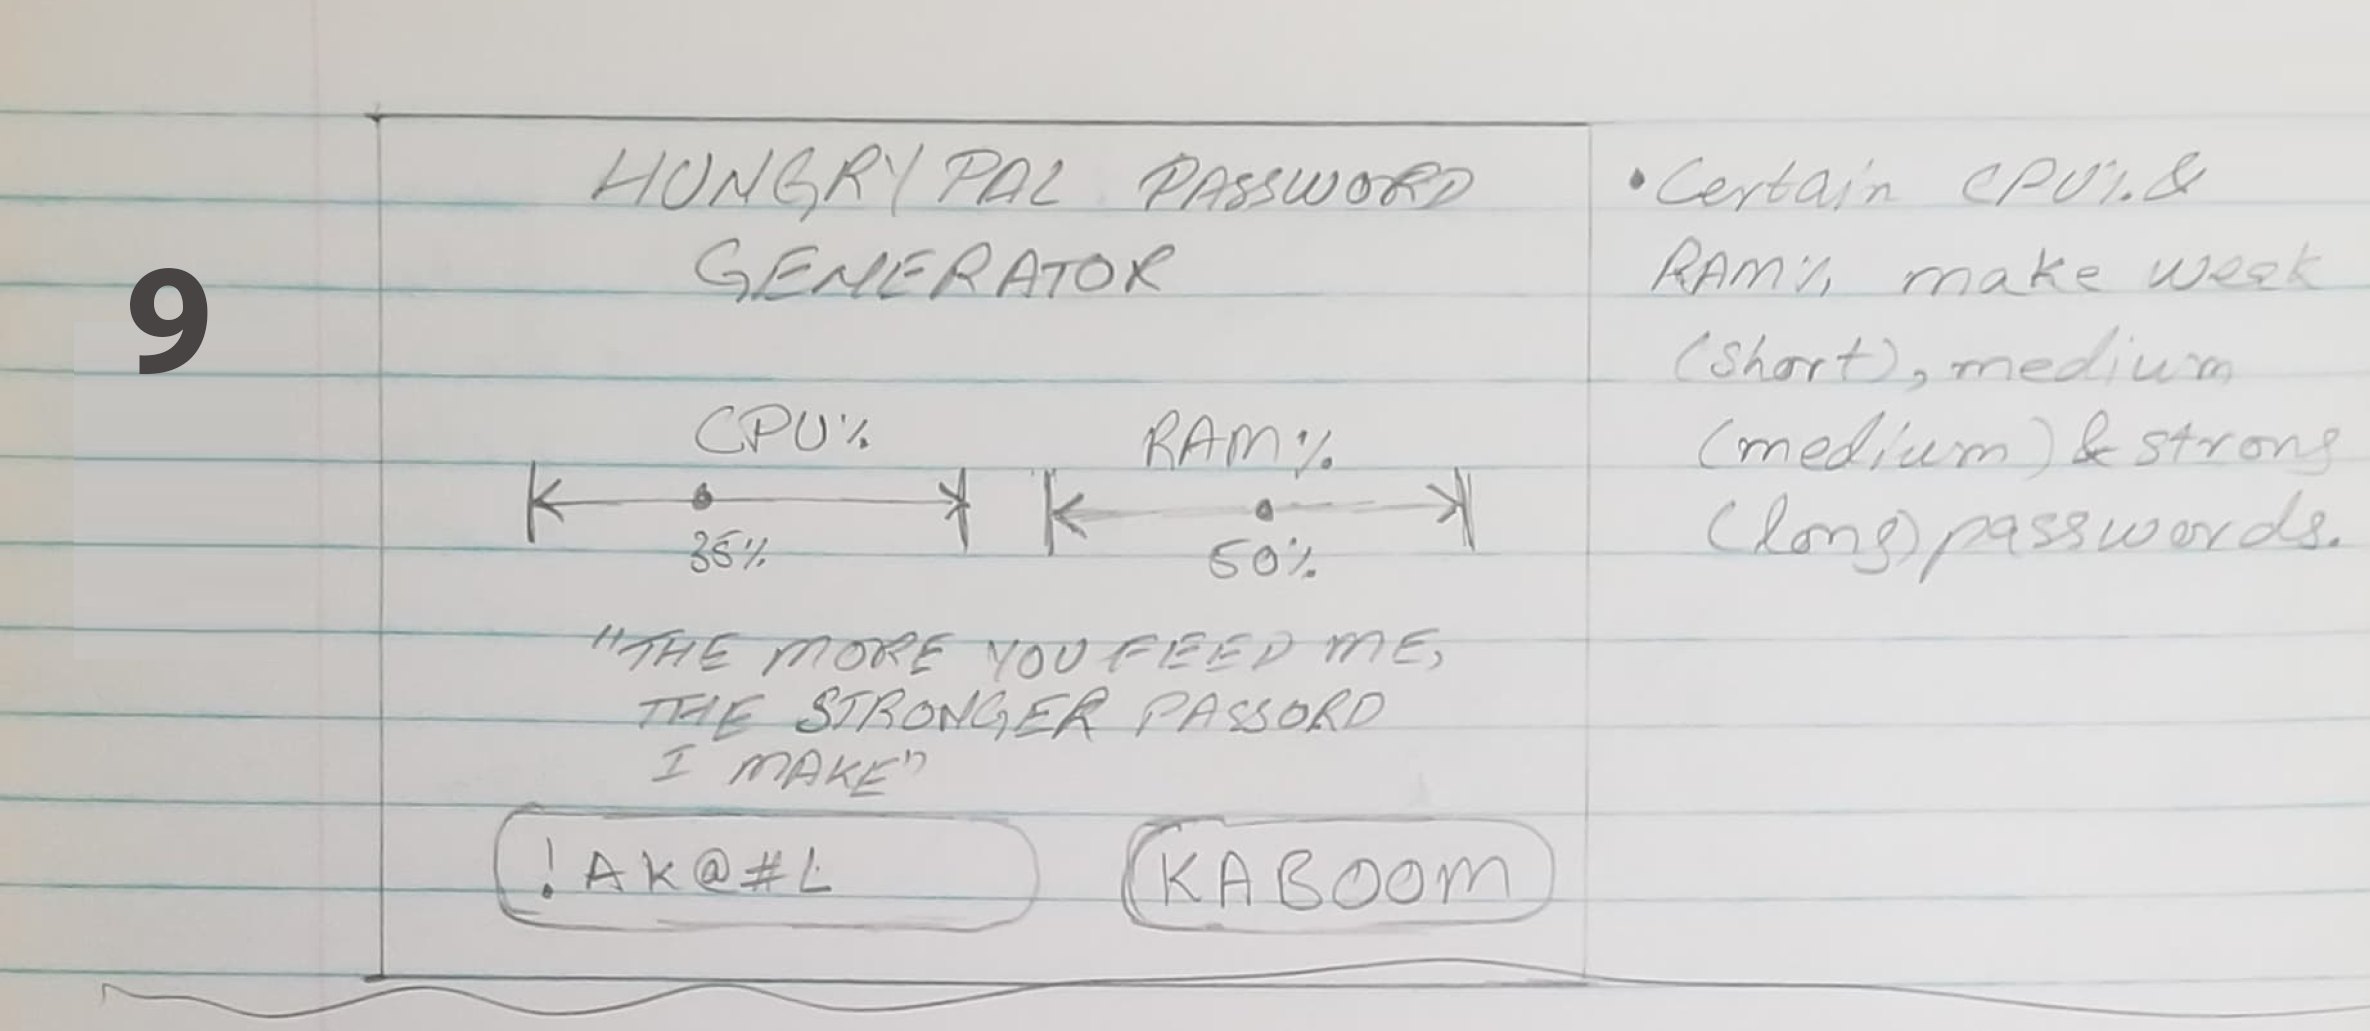 9
HUNGRY PAL PASSWORD
GENERATOR
CPU%
RAM%
35%
50%
"THE MORE YOU FEED ME,
THE STRONGER PASSORD
I MAKE"
!AK@#L
KABOOM
• Certain CPU% &
RAM% make weak
(short), medium
(medium) & strong
(long) passwords.